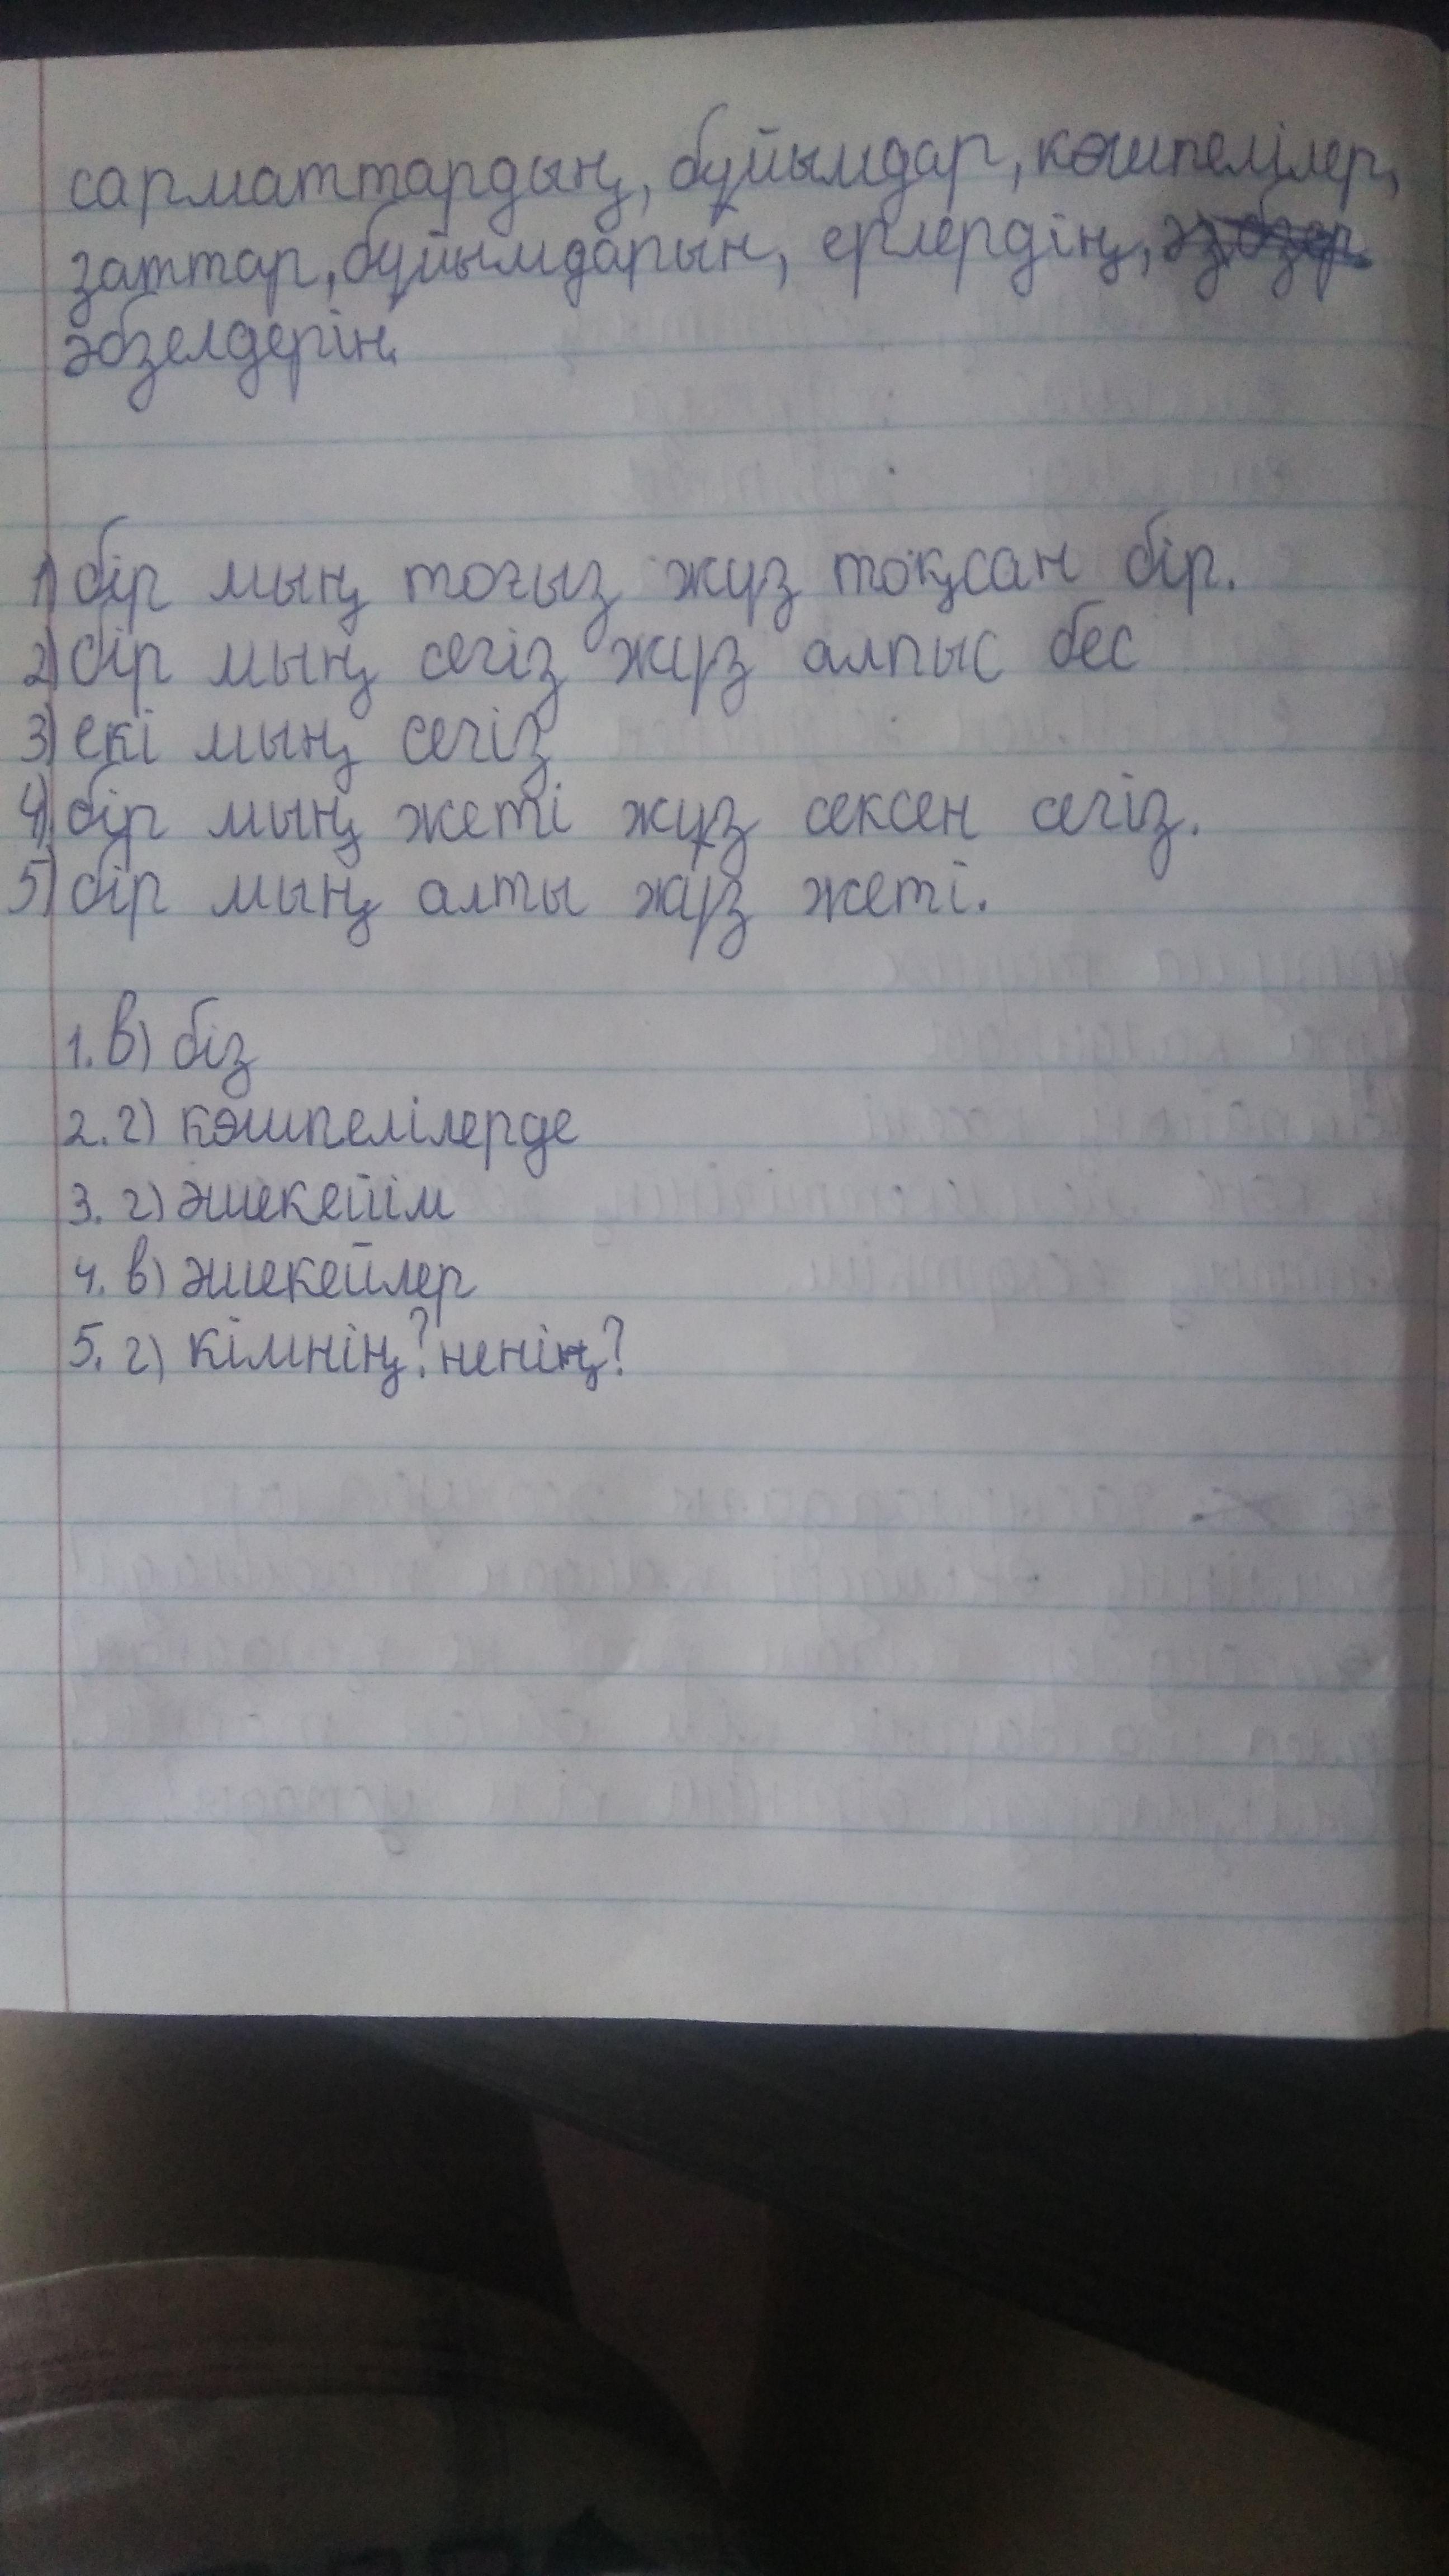 сарматтардың, бұйымдар, көшпелілер,
заттар, бұйымдарын, ерлердің,
әбзелдерін.
1) бір мың тоғыз жүз тоқсан бір.
2) бір мың сегіз жүз алпыс бес
3) екі мың сегіз
4) бір мың жеті жүз сексен сегіз.
5) бір мың алты жүз жеті.
1. в) біз
2. г) көшпелілерде
3. г) әшекейім
4. в) әшекейлер
5. г) кімнің? ненің?